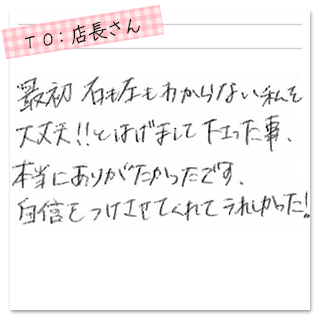 TO:店長さん
最初 右も左もわからない私を
大丈夫!!とはげまして下さった事、
本当にありがたかったです、
自信をつけさせてくれてうれしかった!